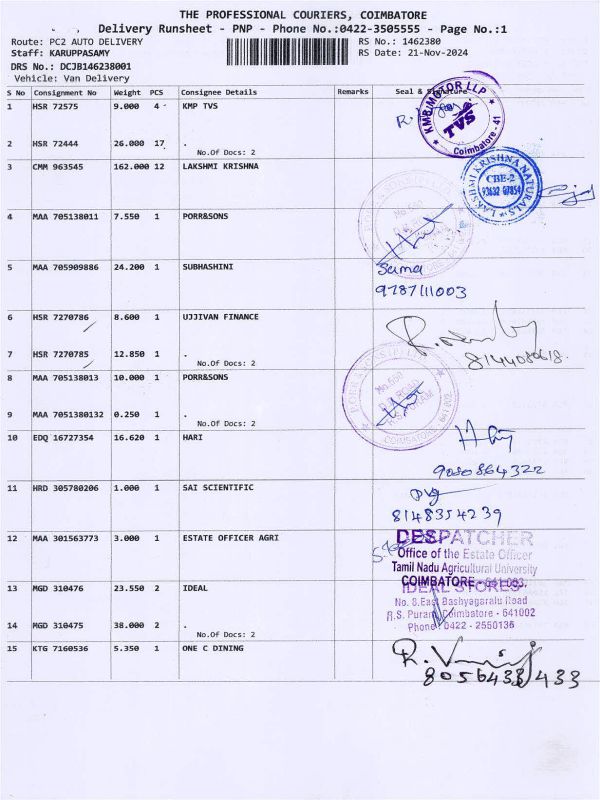 THE PROFESSIONAL COURIERS, COIMBATORE
Delivery Runsheet - PNP - Phone No.:0422-3505555 - Page No.:1
Route: PC2 AUTO DELIVERY RS No.: 1462380
Staff: KARUPPASAMY RS Date: 21-Nov-2024
DRS No.: DCJB146238001
Vehicle: Van Delivery
S No Consignment No Weight PCS Consignee Details Remarks Seal & Signature
1 HSR 72575 9.000 4 KMP TVS
KMB MOTOR LLP
TVS
Coimbatore - 41
2 HSR 72444 26.000 17 .
No.Of Docs: 2
3 CMM 963545 162.000 12 LAKSHMI KRISHNA
LAKSHMI KRISHNA NATURALS
CBE-2
4 MAA 705138011 7.550 1 PORR&SONS
No.660
5 MAA 705909886 24.200 1 SUBHASHINI
Suma
9787111003
6 HSR 7270786 8.600 1 UJJIVAN FINANCE
7 HSR 7270785 12.850 1 .
No.Of Docs: 2
8144080618
8 MAA 705138013 10.000 1 PORR&SONS
No.660
D.B. ROAD
R.S. PURAM
COIMBATORE - 641 002
9 MAA 7051380132 0.250 1 .
No.Of Docs: 2
10 EDQ 16727354 16.620 1 HARI
9080864322
11 HRD 305780206 1.000 1 SAI SCIENTIFIC
8148354239
12 MAA 301563773 3.000 1 ESTATE OFFICER AGRI
DESPATCHER
Office of the Estate Officer
Tamil Nadu Agricultural University
COIMBATORE - 641 003.
13 MGD 310476 23.550 2 IDEAL
IDEAL STORES
No. 8.East Bashyagaralu Road
R.S. Puram, Coimbatore - 641002
Phone: 0422 - 2550136
14 MGD 310475 38.000 2 .
No.Of Docs: 2
15 KTG 7160536 5.350 1 ONE C DINING